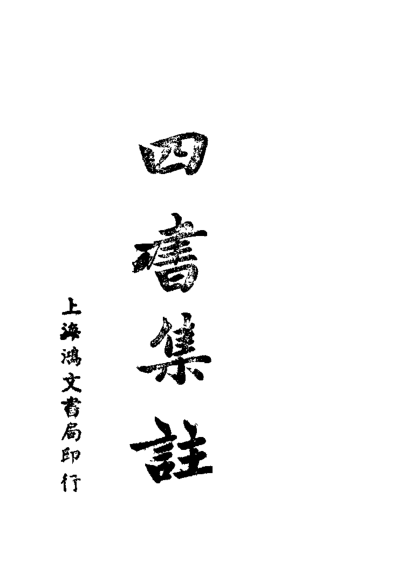 四書集註
上海鴻文書局印行